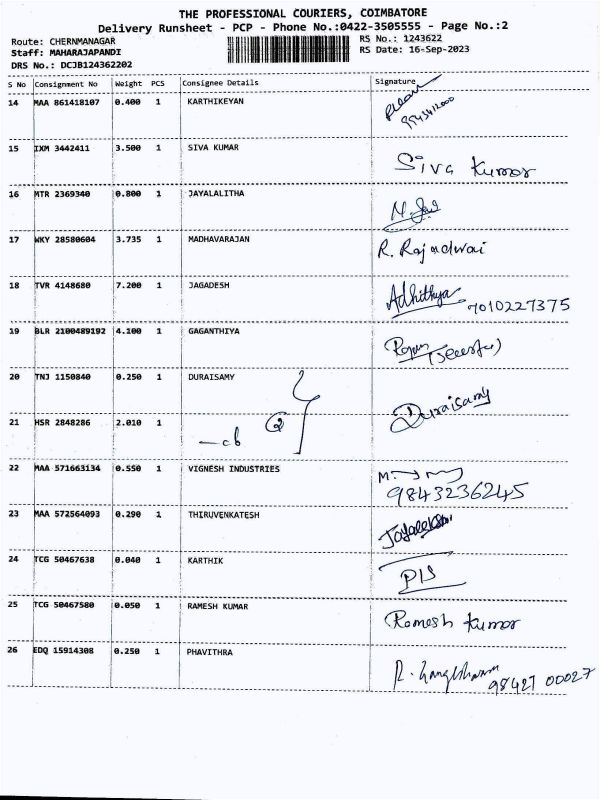 THE PROFESSIONAL COURIERS, COIMBATORE
Delivery Runsheet - PCP - Phone No.:0422-3505555 - Page No.:2
Route: CHERNMANAGAR
RS No.: 1243622
Staff: MAHARAJAPANDI
RS Date: 16-Sep-2023
DRS No.: DCJB124362202
S No Consignment No Weight PCS Consignee Details Signature
14 MAA 861418107 0.400 1 KARTHIKEYAN
15 IXM 3442411 3.500 1 SIVA KUMAR Siva Kumar
16 MTR 2369340 0.800 1 JAYALALITHA
17 WKY 28580604 3.735 1 MADHAVARAJAN R. Rajadwai
18 TVR 4148680 7.200 1 JAGADESH Adhithya 7010227375
19 BLR 2100489192 4.100 1 GAGANTHIYA
20 TNJ 1150840 0.250 1 DURAISAMY Duraisamy
21 HSR 2848286 2.010 1
22 MAA 571663134 0.550 1 VIGNESH INDUSTRIES
9843236245
23 MAA 572564093 0.290 1 THIRUVENKATESH
24 TCG 50467638 0.040 1 KARTHIK
25 TCG 50467580 0.050 1 RAMESH KUMAR Ramesh Kumar
26 EDQ 15914308 0.250 1 PHAVITHRA
98427 00027